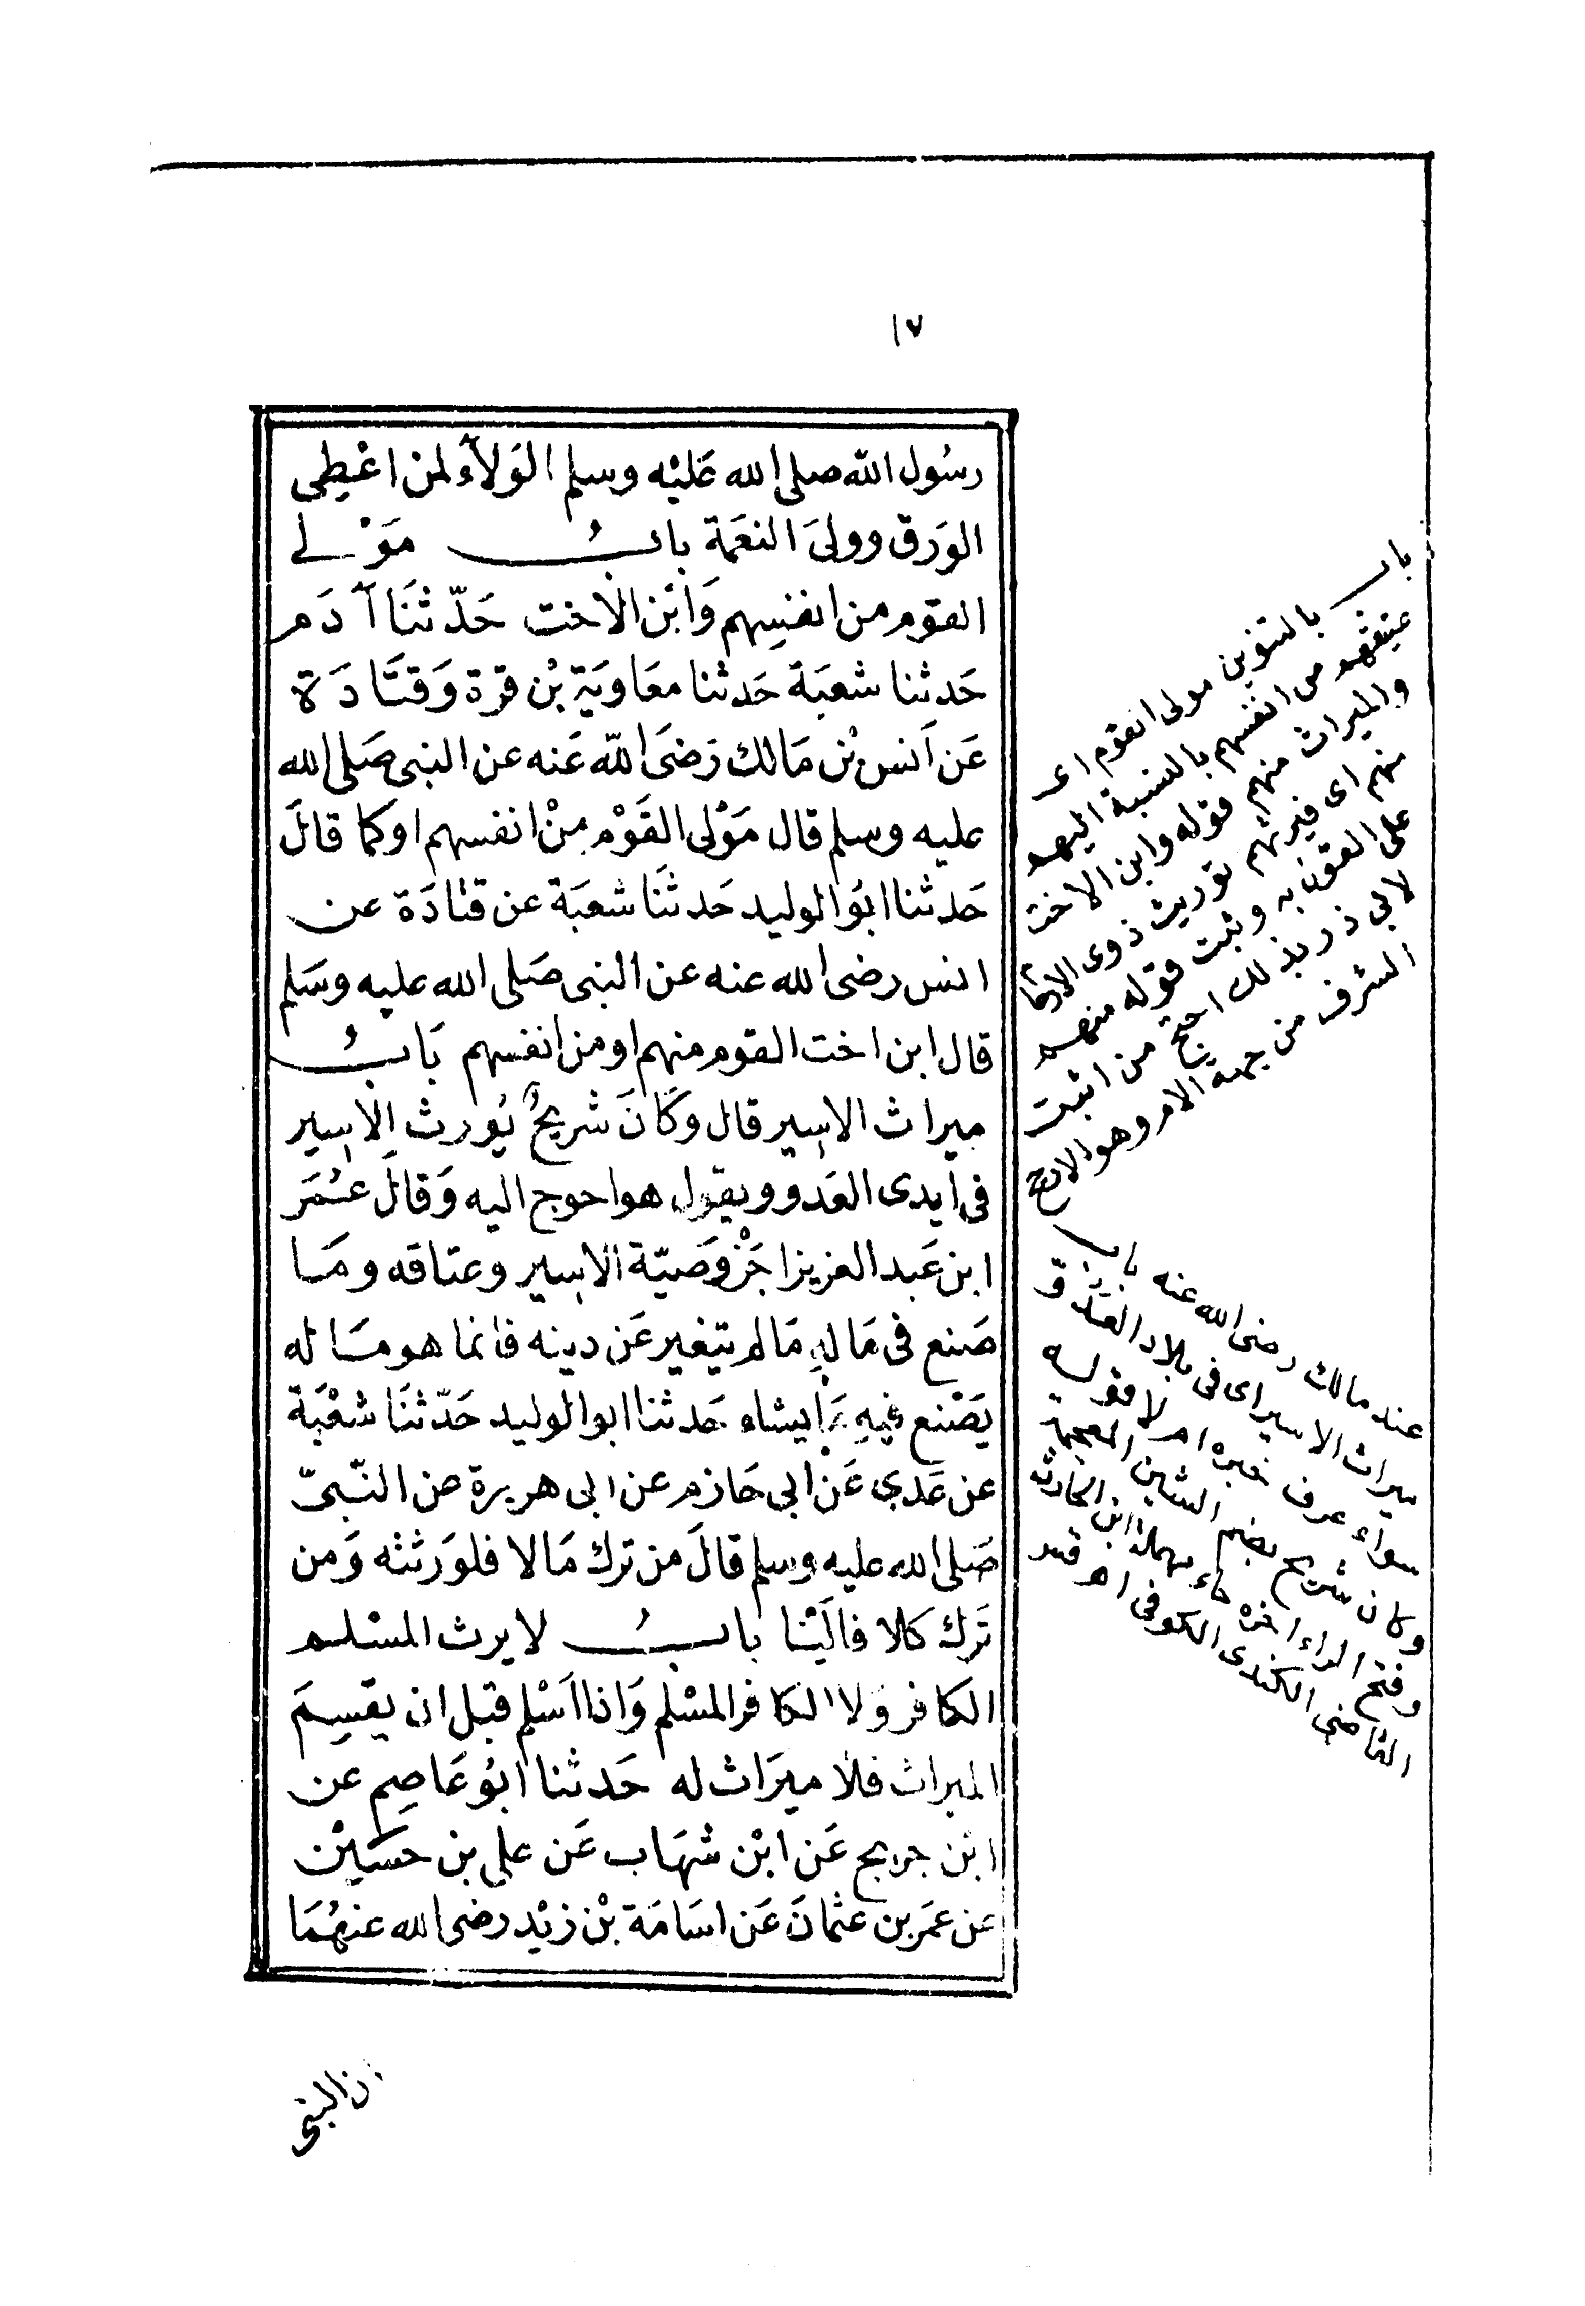 ١٧
رسُول الله صلى الله عَليْه وسلم الوَلآء لمن اعْطِى
الوَرق وولىَ النعَمة بابُ مَوْلے
القوم من انفسِهم وَابْن الاخت حَدّثنَا آدَم
حَدثنا شعبَة حَدثنا معَاويَة بْن قرة وَقتَادَة
عَن اَنس بْن مَالك رَضىَ اللّه عَنه عن النبى صَلى الله
عليه وسلم قال مَوْلى القَوْم مِنْ انفسهم اوكما قالَ
حَدثنا ابُو الوليد حَدثنَا شعبَة عن قتادَة عن
انس رضى الله عنه عن النبى صَلى الله عليه وسَلم
قال ابن اخت القوم منهم او من انفسهم بَابُ
ميراث الاسِير قال وكَانَ شريحٌ يُورث الاسِير
فى ايدى العَدو ويقول هو احوج اليه وَقالَ عُمَر
ابن عَبد العزيز اجَزْ وَصَيّة الاسِير وعتاقه ومَا
صَنع فى مَالهِ مَا لم يتغير عَن دينه فانما هو مَاله
يَصْنع فيهِ مَا يشاء حَدثنا ابو الوليد حَدّثنَا شعْبَة
عن عَدي عَنْ ابي حَازم عن ابى هريرة عن النّبىّ
صَلى الله عليه وسلم قالَ من ترك مَالا فلوَرثته وَمن
تَرك كلا فالَيْنا بابُ لا يرث المسْلم
الكافر وَلا الكافر المسْلم وَاذا اَسْلم قبل ان يقسِمَ
الميراث فلا ميرَاث له حَدثنا ابُو عَاصِم عن
ابْن جريج عَن ابْن شهَاب عَن على بن حسَيْن
عن عمَر بن عثمانَ عَن اسَامَة بْن زيْد رضى الله عنهُمَا
باب بالتنوين مولى القوم اى
عتيقهم من انفسهم بالنسبة اليهم
والميراث منهم قوله وابن الاخت
منهم اى فيرثهم توريث ذوى الارحام
على القول به وثبت قوله منهم
لابي ذر بذلك احتج من اثبت
الشرف من جهة الام وهو الارجح
عند مالك رضى الله عنه باب
ميراث الاسير اى فى بلاد العدو
سواء عرف خبره ام لا قوله
وكان شريح بضم الشين المعجمة
وفتح الراء اخره حاء مهملة ابن الحارث
القاضى الكندى الكوفى اهـ
ان النبى